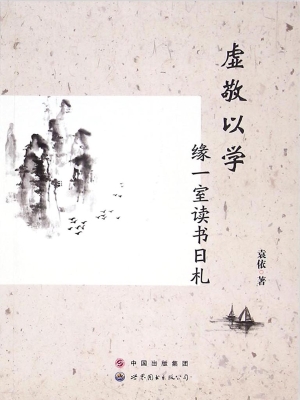 虚敬以学
缘一室读书日札
袁依 著
中国出版集团
世界图书出版公司